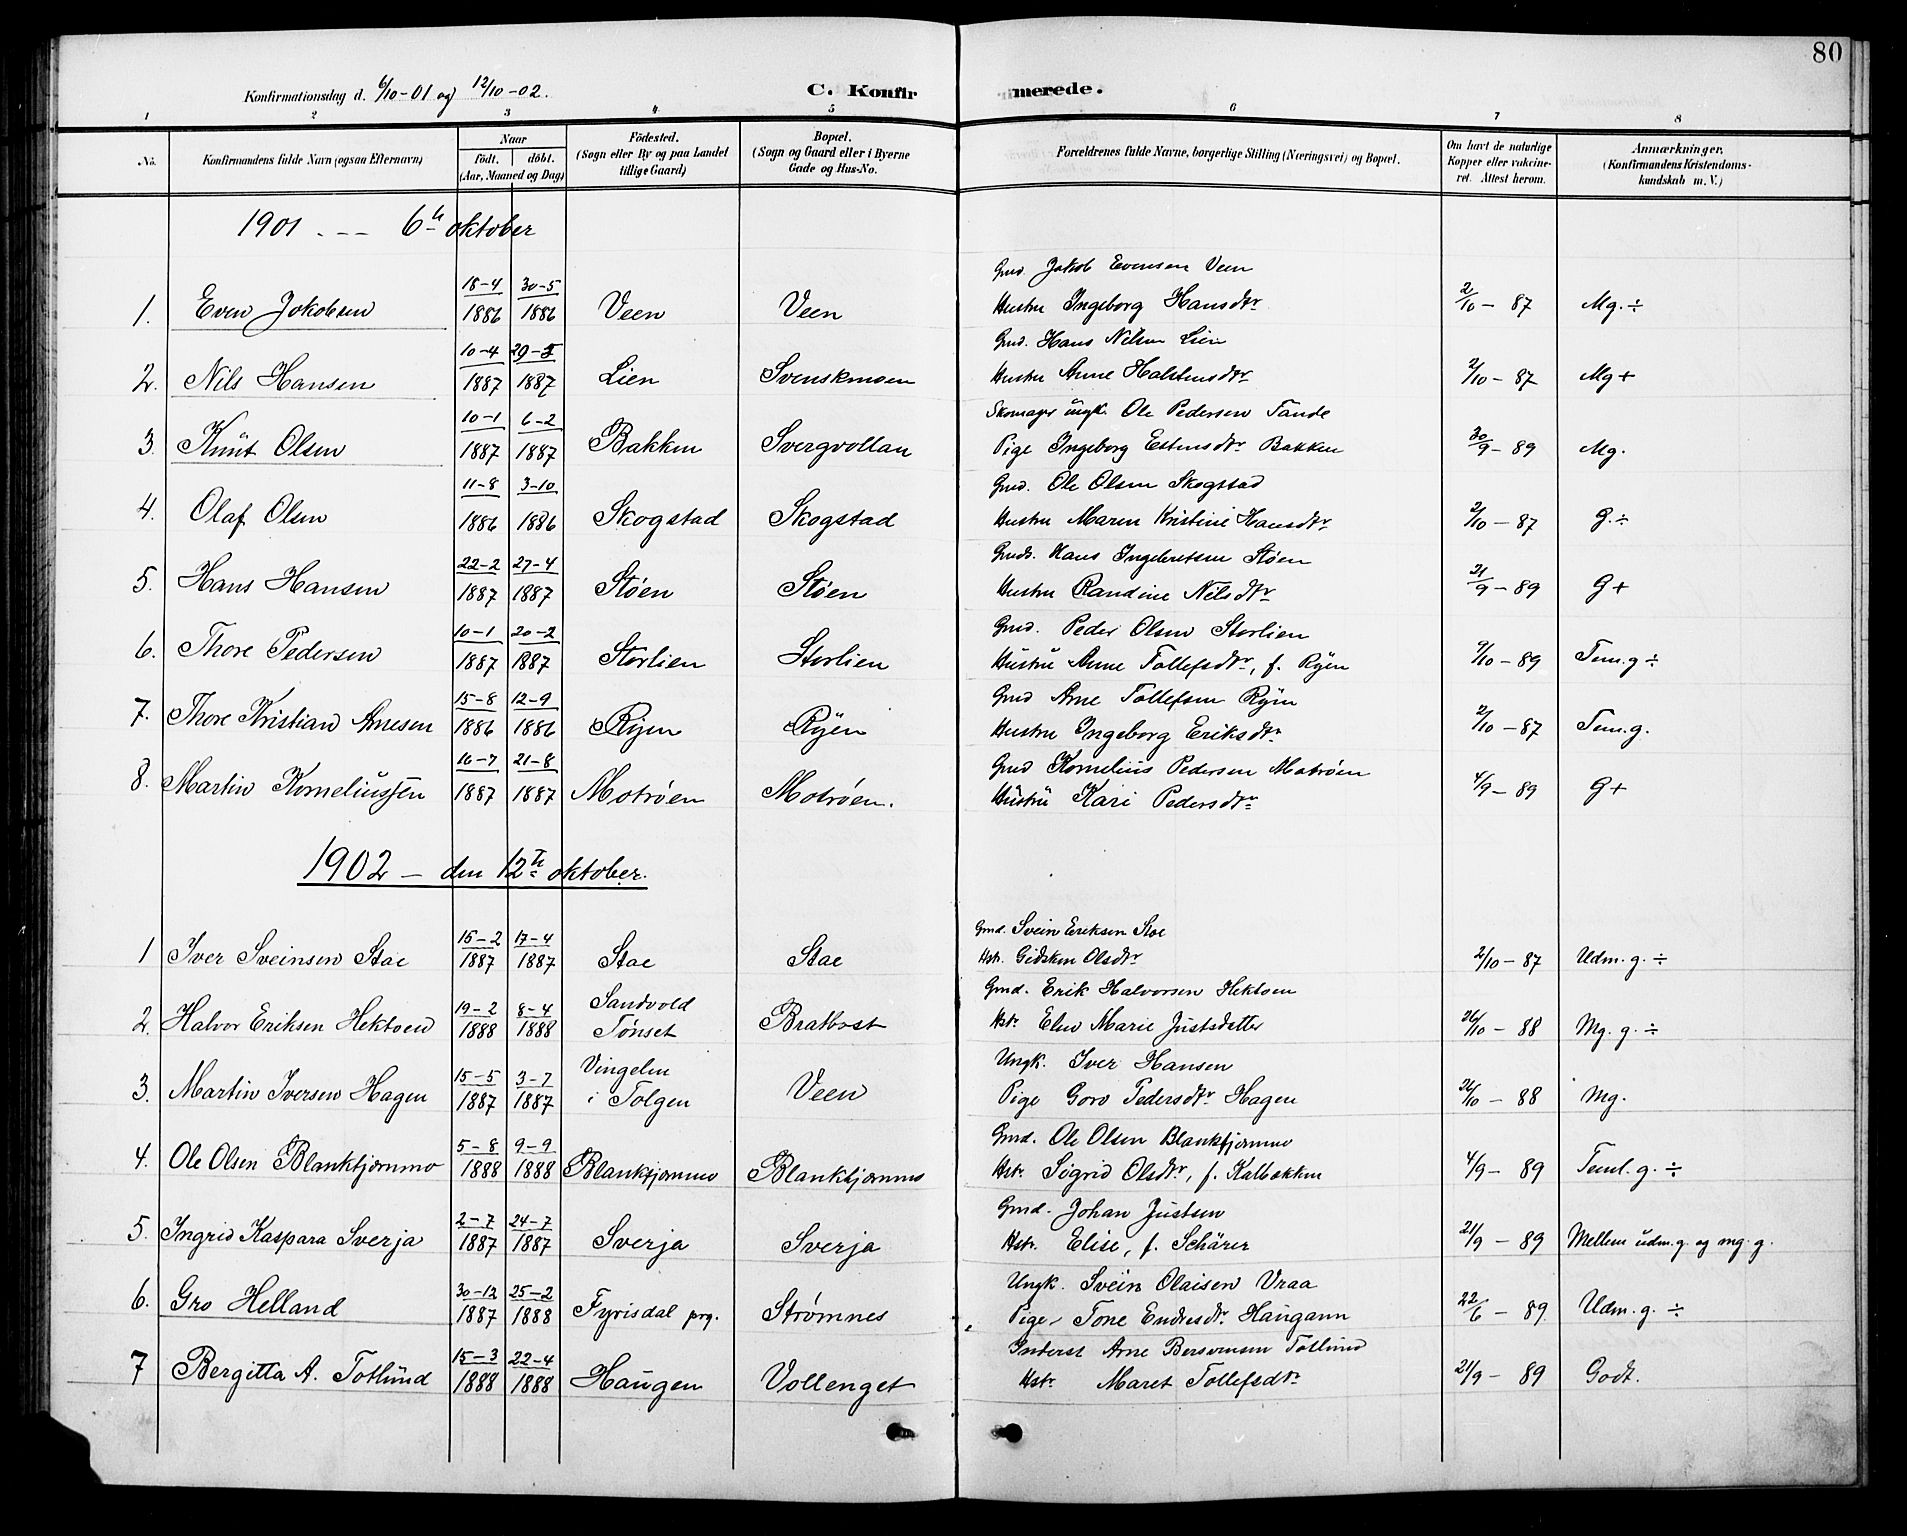 80
Konfirmationsdag d. 6/10-01 og 12/10-02.
C. Konfirmerede.
1 2 3 4 5 6 7 8
No. Konfirmandens fulde Navn (ogsaa Efternavn) Naar födt. döbt. (Aar, Maaned og Dag) Födested. (Sogn eller By og paa Landet tillige Gaard) Bopæl. (Sogn og Gaard eller i Byerne Gade og Hus-No. Forældrenes fulde Navne, borgerlige Stilling (Næringsvei) og Bopæl. Om havt de naturlige Kopper eller vakcineret. Attest herom. Anmærkninger. (Konfirmandens Kristendomskundskab m. V.)
1901 - - - 6te oktober
18-4 30-5 Gmd. Jakob Evensen Veen
1. Even Jokobsen 1886 1886 Veen Veen Hustru Ingeborg Hansdtr 2/10 - 87 Mg. ÷
10-4 29-5 Gmd. Hans Nilsen Lien
2. Nils Hansen 1887 1887 Lien Svenskmoen Hustru Anne Halstensdtr 2/10 - 87 Mg +
10-1 6-2 Skomager ungk. Ole Pedersen Tande
3. Knut Olsen 1887 1887 Bakken Svergvollan Pige Ingeborg Estensdtr Bakken 30/9 - 89 Mg.
11-8 3-10 Gmd. Ole Olsen Skogstad
4. Olaf Olsen 1886 1886 Skogstad Skogstad Hustru Maren Kristine Hansdtr 2/10 - 87 G. ÷
22-2 27-4 Gmd. Hans Ingebretsen Støen
5. Hans Hansen 1887 1887 Støen Støen Hustru Randine Nilsdtr 21/9 - 89 G +
10-1 20-2 Gmd. Peder Olsen Storlien
6. Thore Pedersen 1887 1887 Storlien Storlien Hustru Anne Tollefsdtr, f. Ryen /10 - 89 Tem. g ÷
15-8 12-9 Gmd Arne Tollefsen Ryen
7. Thore Kristian Arnesen 1886 1886 Ryen Ryen Hustru Ingeborg Eriksdtr 2/10 - 87 Tem. g.
16-7 21-8 Gmd Kornelius Pedersen Motrøen
8. Martin Korneliussen 1887 1887 Motrøen Motrøen. Hustru Kari Pedersdtr 4/9 - 89 G +
1902 - den 12te oktober.
16-2 17-4 Gmd. Svein Eriksen Stae
1 Iver Sveinsen Stae 1887 1887 Stae Stae Hstr. Gidsken Olsdtr 2/10 - 87 Udm. g. ÷
19-2 8-4 Sandvold Gmd. Erik Halvorsen Hektoen
2. Halvor Eriksen Hektoen 1888 1888 Tønset Bratbost Hstr Elen Marie Justsdatter 26/10 - 88 Mg. g. ÷
15-5 3-7 Vingelen Ungk. Iver Hansen
3. Martin Iversen Hagen 1887 1887 i Tolgen Veen Pige Goro Pedersdtr Hagen 26/10 - 88 Mg.
5-8 9-9 Gmd. Ole Olsen Blanktjernmo
4. Ole Olsen Blanktjernmo 1888 1888 Blanktjernmo Blanktjernmo Hstr. Sigrid Olsdtr, f. Kalbækken 4/9 - 89 Teml. g. ÷
2-7 24-7 Gmd. Johan Justsen
5. Ingrid Kaspara Sverja 1887 1887 Sverja Sverja Hstr. Elise, f. Schärer 21/9 - 89 Mellem udm. g. og mg. g.
30-12 25-2 Ungk. Svein Olaisen Vraa
6. Gro Helland 1887 1888 Fyrisdal prg. Strømnes Pige Tone Endresdtr Haugann 22/6 - 89 Udm. g. ÷
15-3 22-4 Inderst Arne Bersvensen Totlund
7 Bergitta A. Totlund 1888 1888 Haugen Vollenget Hstr Maret Tollefsdtr 21/9 - 89 Godt.